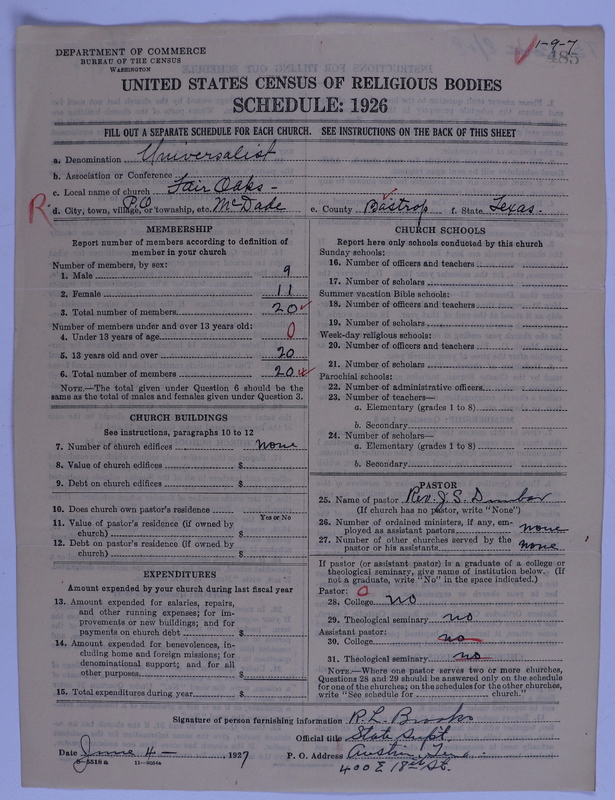 DEPARTMENT OF COMMERCE
BUREAU OF THE CENSUS
WASHINGTON
1-9-7
485
UNITED STATES CENSUS OF RELIGIOUS BODIES
SCHEDULE: 1926
FILL OUT A SEPARATE SCHEDULE FOR EACH CHURCH. SEE INSTRUCTIONS ON THE BACK OF THIS SHEET
a. Denomination Universalist
b. Association or Conference
c. Local name of church Fair Oaks -
R d. City, town, village, or township, etc. P.O. McDade e. County Bastrop f. State Texas.
MEMBERSHIP
Report number of members according to definition of
member in your church
Number of members, by sex:
1. Male 9
2. Female 11
3. Total number of members 20
Number of members under and over 13 years old:
4. Under 13 years of age 0
5. 13 years old and over 20
6. Total number of members 20
NOTE.—The total given under Question 6 should be the
same as the total of males and females given under Question 3.
CHURCH BUILDINGS
See instructions, paragraphs 10 to 12
7. Number of church edifices none
8. Value of church edifices $
9. Debt on church edifices $
10. Does church own pastor's residence
Yes or No
11. Value of pastor's residence (if owned by
church) $
12. Debt on pastor's residence (if owned by
church) $
EXPENDITURES
Amount expended by your church during last fiscal year
13. Amount expended for salaries, repairs,
and other running expenses; for im-
provements or new buildings; and for
payments on church debt $
14. Amount expended for benevolences, in-
cluding home and foreign missions; for
denominational support; and for all
other purposes. $
15. Total expenditures during year $
CHURCH SCHOOLS
Report here only schools conducted by this church
Sunday schools:
16. Number of officers and teachers
17. Number of scholars
Summer vacation Bible schools:
18. Number of officers and teachers
19. Number of scholars
Week-day religious schools:
20. Number of officers and teachers
21. Number of scholars
Parochial schools:
22. Number of administrative officers
23. Number of teachers—
a. Elementary (grades 1 to 8)
b. Secondary
24. Number of scholars—
a. Elementary (grades 1 to 8)
b. Secondary
PASTOR
25. Name of pastor Rev. J. S. Dunbar
(If church has no pastor, write "None")
26. Number of ordained ministers, if any, em-
ployed as assistant pastors none
27. Number of other churches served by the
pastor or his assistants none
If pastor (or assistant pastor) is a graduate of a college or
theological seminary, give name of institution below. (If
not a graduate, write "No" in the space indicated.)
Pastor: 0
28. College no
29. Theological seminary no
Assistant pastor:
30. College no
31. Theological seminary no
NOTE.—Where one pastor serves two or more churches,
Questions 28 and 29 should be answered only on the schedule
for one of the churches; on the schedules for the other churches,
write "See schedule for church."
Signature of person furnishing information R. L. Brooks
Official title State Supt.
Date June 4 - 1927 P. O. Address Austin,
8-5518 a 400 E 18th St.